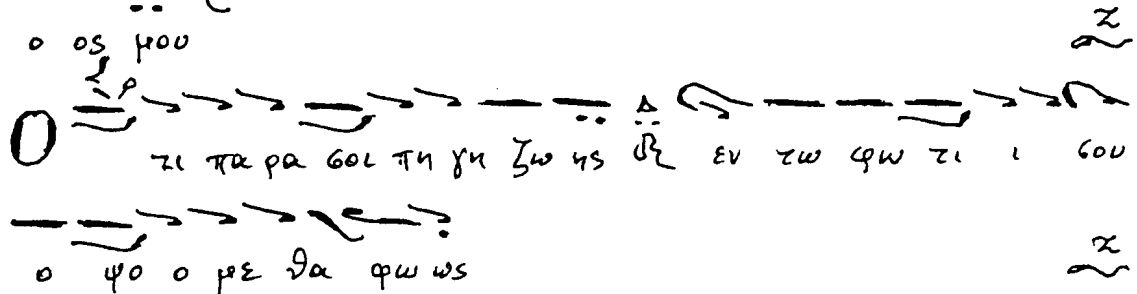 ο ος μου
Ο τι πα ρα σοι πη γη ζω ης εν τω φω τι ι σου
ο ψο ο με θα φω ως